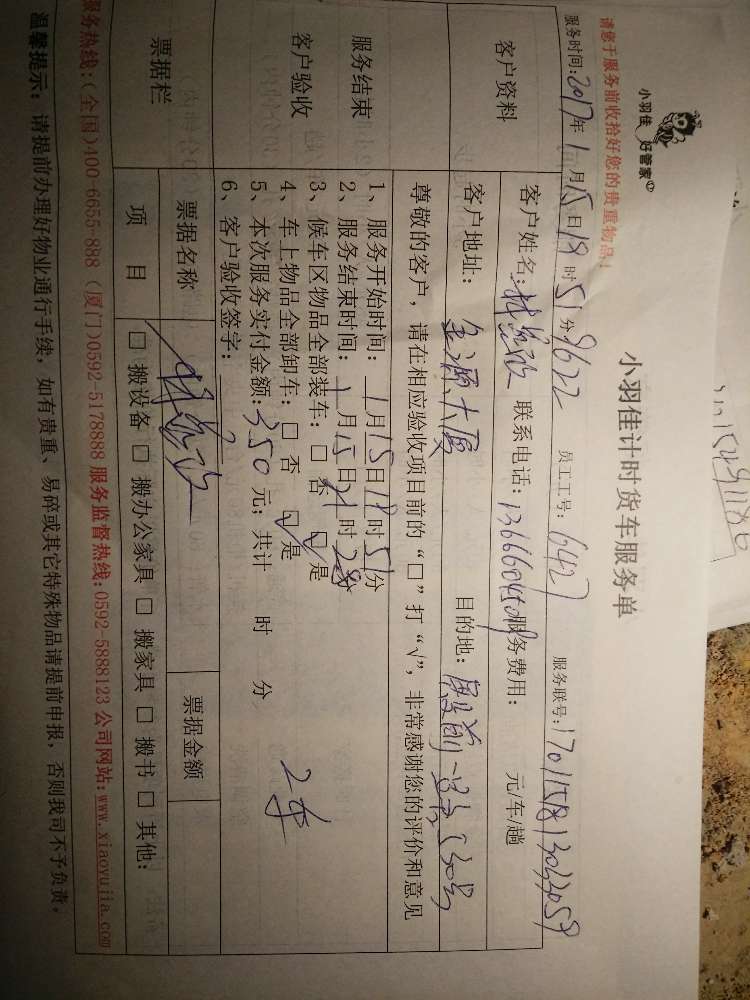 小羽佳 好管家
请您于服务前收拾好您的贵重物品！
小羽佳计时货车服务单
服务时间:2017年1月15日18时51分 9622 员工工号: 6427 服务联号:1701158130433059
客户资料
客户姓名: 联系电话: 服务费用: 元/车/趟
客户地址: 金源大厦 目的地:
服务结束
客户验收
尊敬的客户，请在相应验收项目前的“□”打“√”，非常感谢您的评价和意见
1、服务开始时间: 1月15日18时51分
2、服务结束时间: 1月15日21时28分
3、候车区物品全部装车: □ 否 ☑ 是
4、车上物品全部卸车: □ 否 ☑ 是
5、本次服务实付金额: 350 元; 共计 时 分
2车
6、客户验收签字:
票据栏
票据名称 票据金额
项 目 □ 搬设备 □ 搬办公家具 □ 搬家具 □ 搬书 □ 其他:
服务热线:(全国)400-6655-888 (厦门)0592-5178888 服务监督热线:0592-5888123 公司网站:www.xiaoyujia.com
温馨提示: 请提前办理好物业通行手续，如有贵重、易碎或其它特殊物品请提前申报，否则我司不予负责。